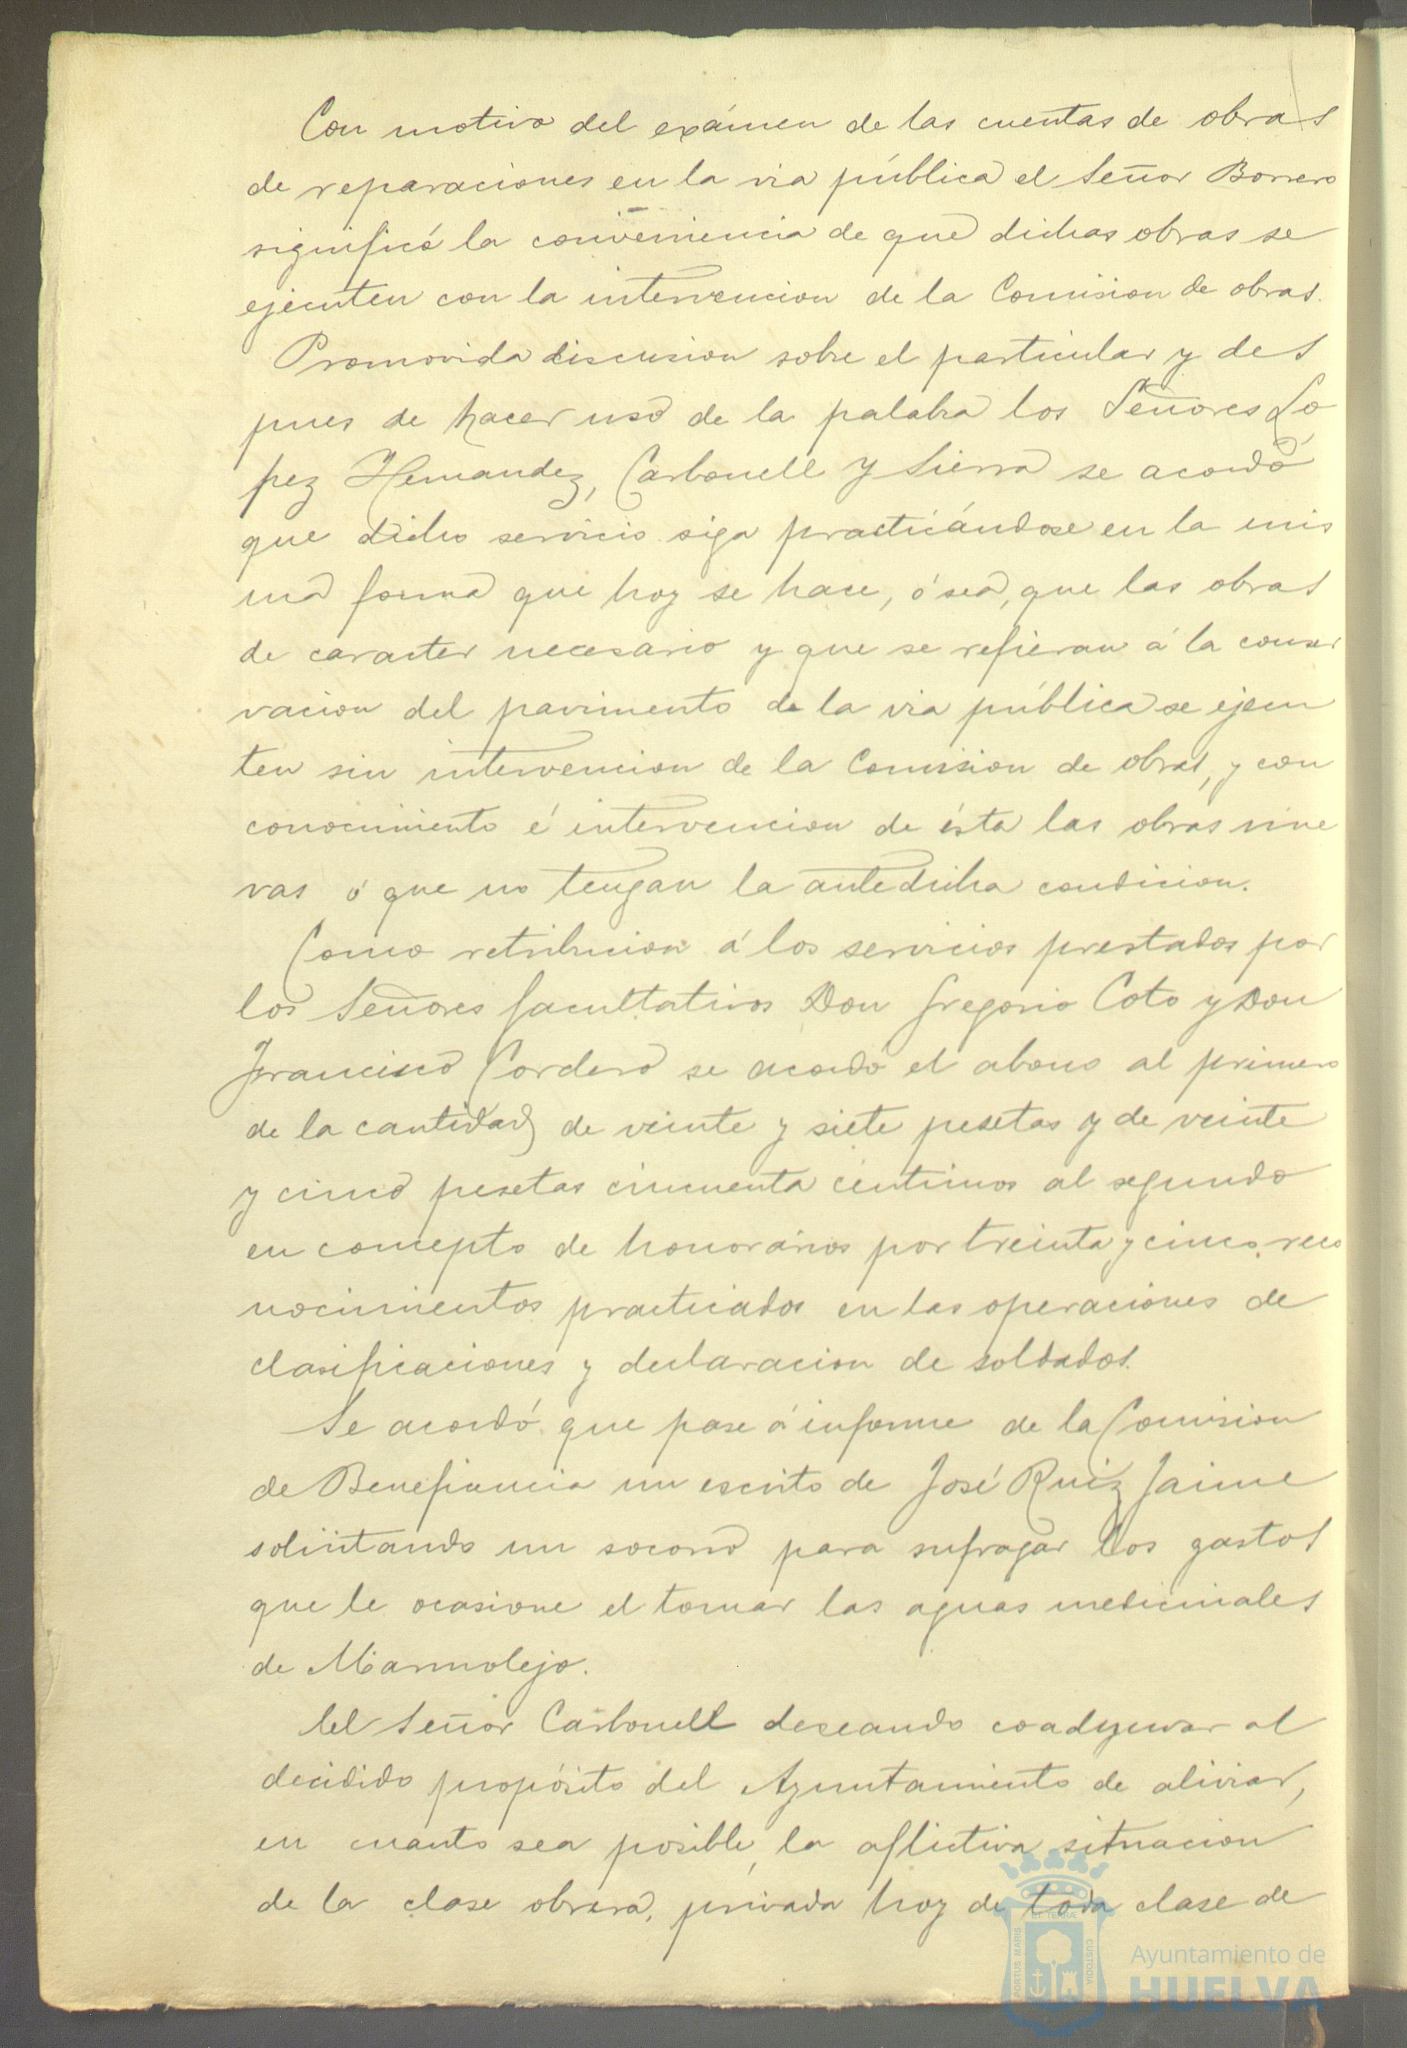 Con motivo del exámen de las cuentas de obras
de reparaciones en la via pública el Señor Borrero
significó la conveniencia de que dichas obras se
ejecuten con la intervencion de la Comision de obras.
Promovida discusion sobre el particular y des
pues de hacer uso de la palabra los Señores Lo
pez Hernandez, Carbonell y Sierra se acordó
que dicho servicio siga practicándose en la mis
ma forma que hoy se hace, ó sea, que las obras
de caracter necesario y que se refieran á la conser
vacion del pavimento de la via pública se ejecu
ten sin intervencion de la Comision de obras, y con
conocimiento é intervencion de ésta las obras nue
vas ó que no tengan la antedicha condicion.
Como retribucion á los servicios prestados por
los Señores facultativos Don Gregorio Coto y Don
Francisco Cordero se acordó el abono al primero
de la cantidad de veinte y siete pesetas y de veinte
y cinco pesetas cincuenta centimos al segundo
en concepto de honorarios por treinta y cinco reco
nocimientos practicados en las operaciones de
clasificaciones y declaracion de soldados.
Se acordó que pase á informe de la Comision
de Beneficencia un escrito de José Ruiz Jaime
solicitando un socorro para sufragar los gastos
que le ocasione el tomar las aguas medicinales
de Marmolejo.
El Señor Carbonell deseando coadyuvar al
decidido propósito del Ayuntamiento de aliviar,
en cuanto sea posible, la aflictiva situacion
de la clase obrera, privada hoy de toda clase de
PORTUS MARIS
ET TERRAE
CUSTODIA
Ayuntamiento de
HUELVA